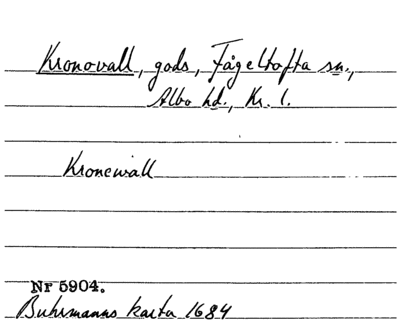 Kronovall, gods, Fågeltofta sn.,
Albo hd., Kr. l.
Kronewall
Nr 5904.
Buhrmanns karta 1684